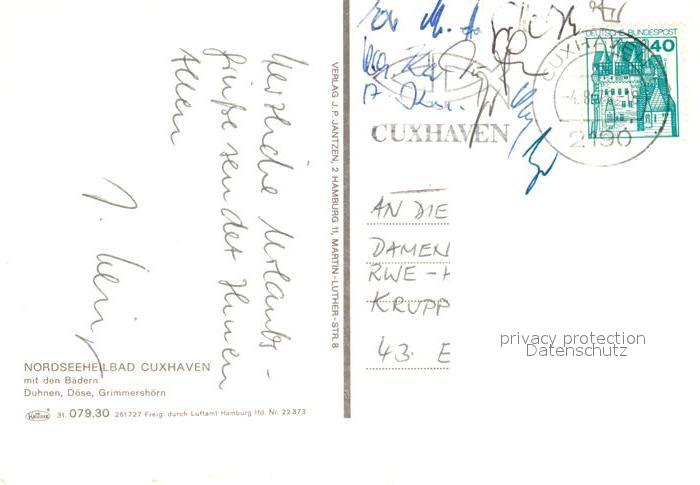 Herzliche Urlaubs-
grüße sendet Ihnen
allen
NORDSEEHEILBAD CUXHAVEN
mit den Bädern
Duhnen, Döse, Grimmershörn
Krüger 31. 079.30 261727 Freig. durch Luftamt Hamburg Hd. Nr. 22373
VERLAG J. P. JANTZEN, 2 HAMBURG 11, MARTIN-LUTHER-STR. 8
DEUTSCHE BUNDESPOST
40
CUXHAVEN
2190
CUXHAVEN
AN DIE
DAMEN
RWE-H
KRUPP
43. E
privacy protection
Datenschutz